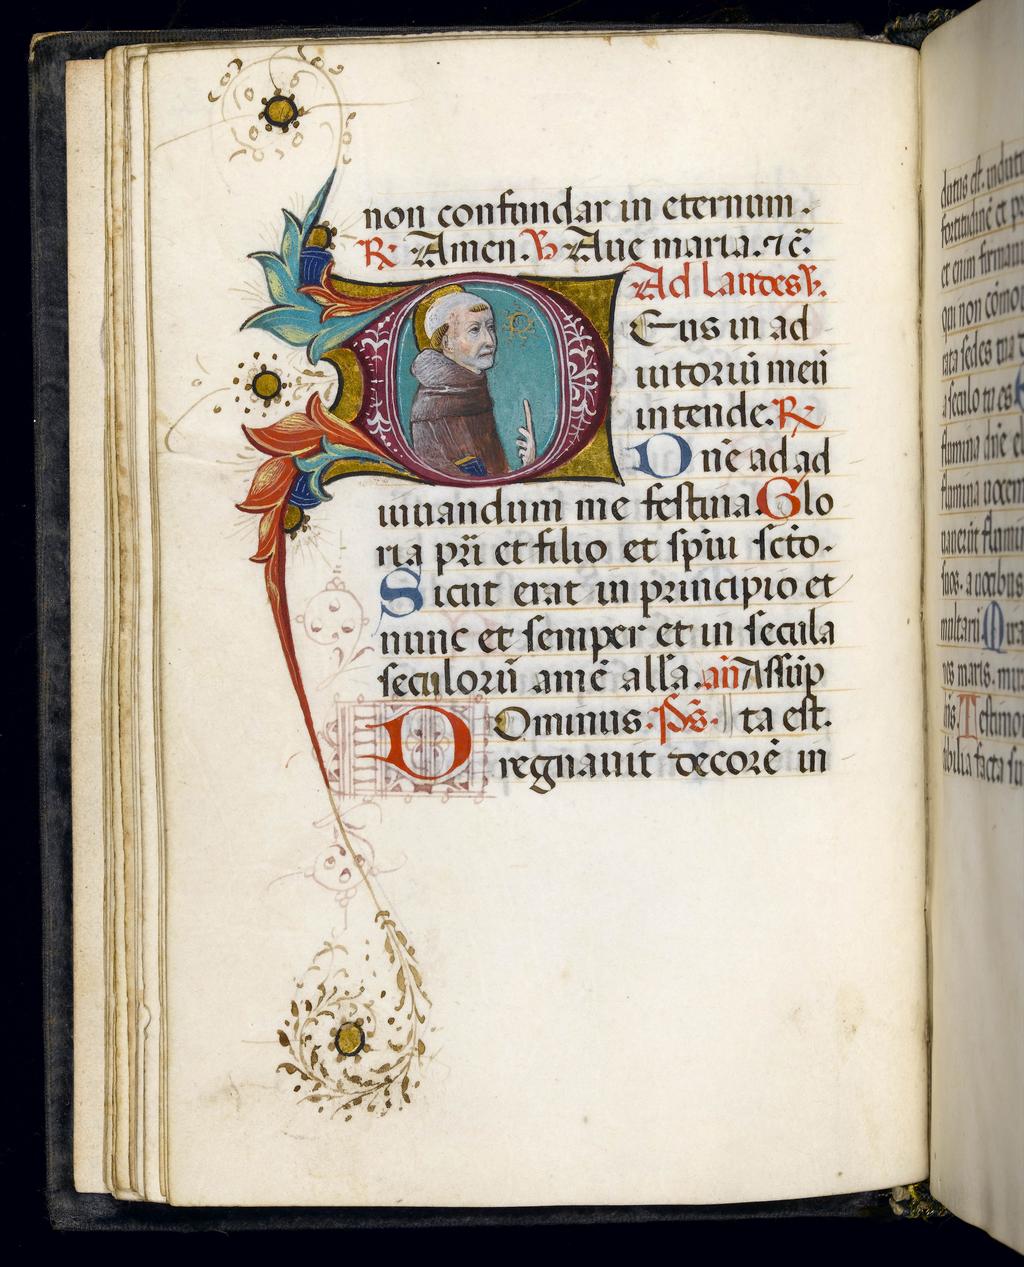 non confundar in eternum.
R Amen. V Aue maria. ⁊ c̄.
Ad laudes v.
Eus in ad
iutoriū meū
intende. R
Dn̄e ad ad
iuuandum me festina Glo
ria pr̄i et filio et spīu scto.
Sicut erat in principio et
nunc et semper et in secula
seculorū amē all'a. an̄ Assūp
Dominus. ps. ta est.
regnauit decorē in
datus est. indutu
fortitudinē et p
et enim firmaui
qui non cōmo
rata sedes tua
a seculo tu es
flumina dn̄e el
flumina uocem
uauerūt flumi
suos. a uocibus
multarū Mira
nis maris. mira
Testimo
bilia facta su